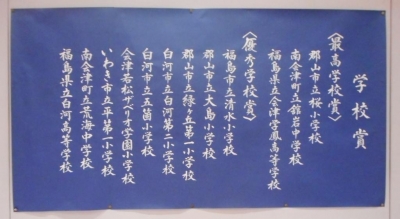 学校賞
〈最高学校賞〉
郡山市立桜小学校
南会津町立舘岩中学校
福島県立会津学鳳高等学校
〈優秀学校賞〉
福島市立清水小学校
郡山市立大島小学校
郡山市立緑ヶ丘第一小学校
白河市立白河第二小学校
白河市立五箇小学校
会津若松ザベリオ学園小学校
いわき市立平第一小学校
南会津町立荒海中学校
福島県立白河高等学校